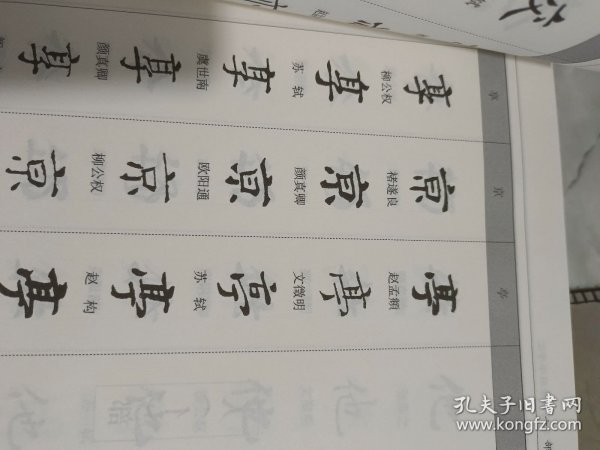 享
享 柳公权
享 苏轼
享 虞世南
享 颜真卿
享
京
京 褚遂良
京 颜真卿
京 欧阳通
京 柳公权
京
亭
亭 赵孟頫
亭 文徵明
亭 苏轼
亭 赵构
亭
孔夫子旧书网
BOOK.KONGFZ.COM